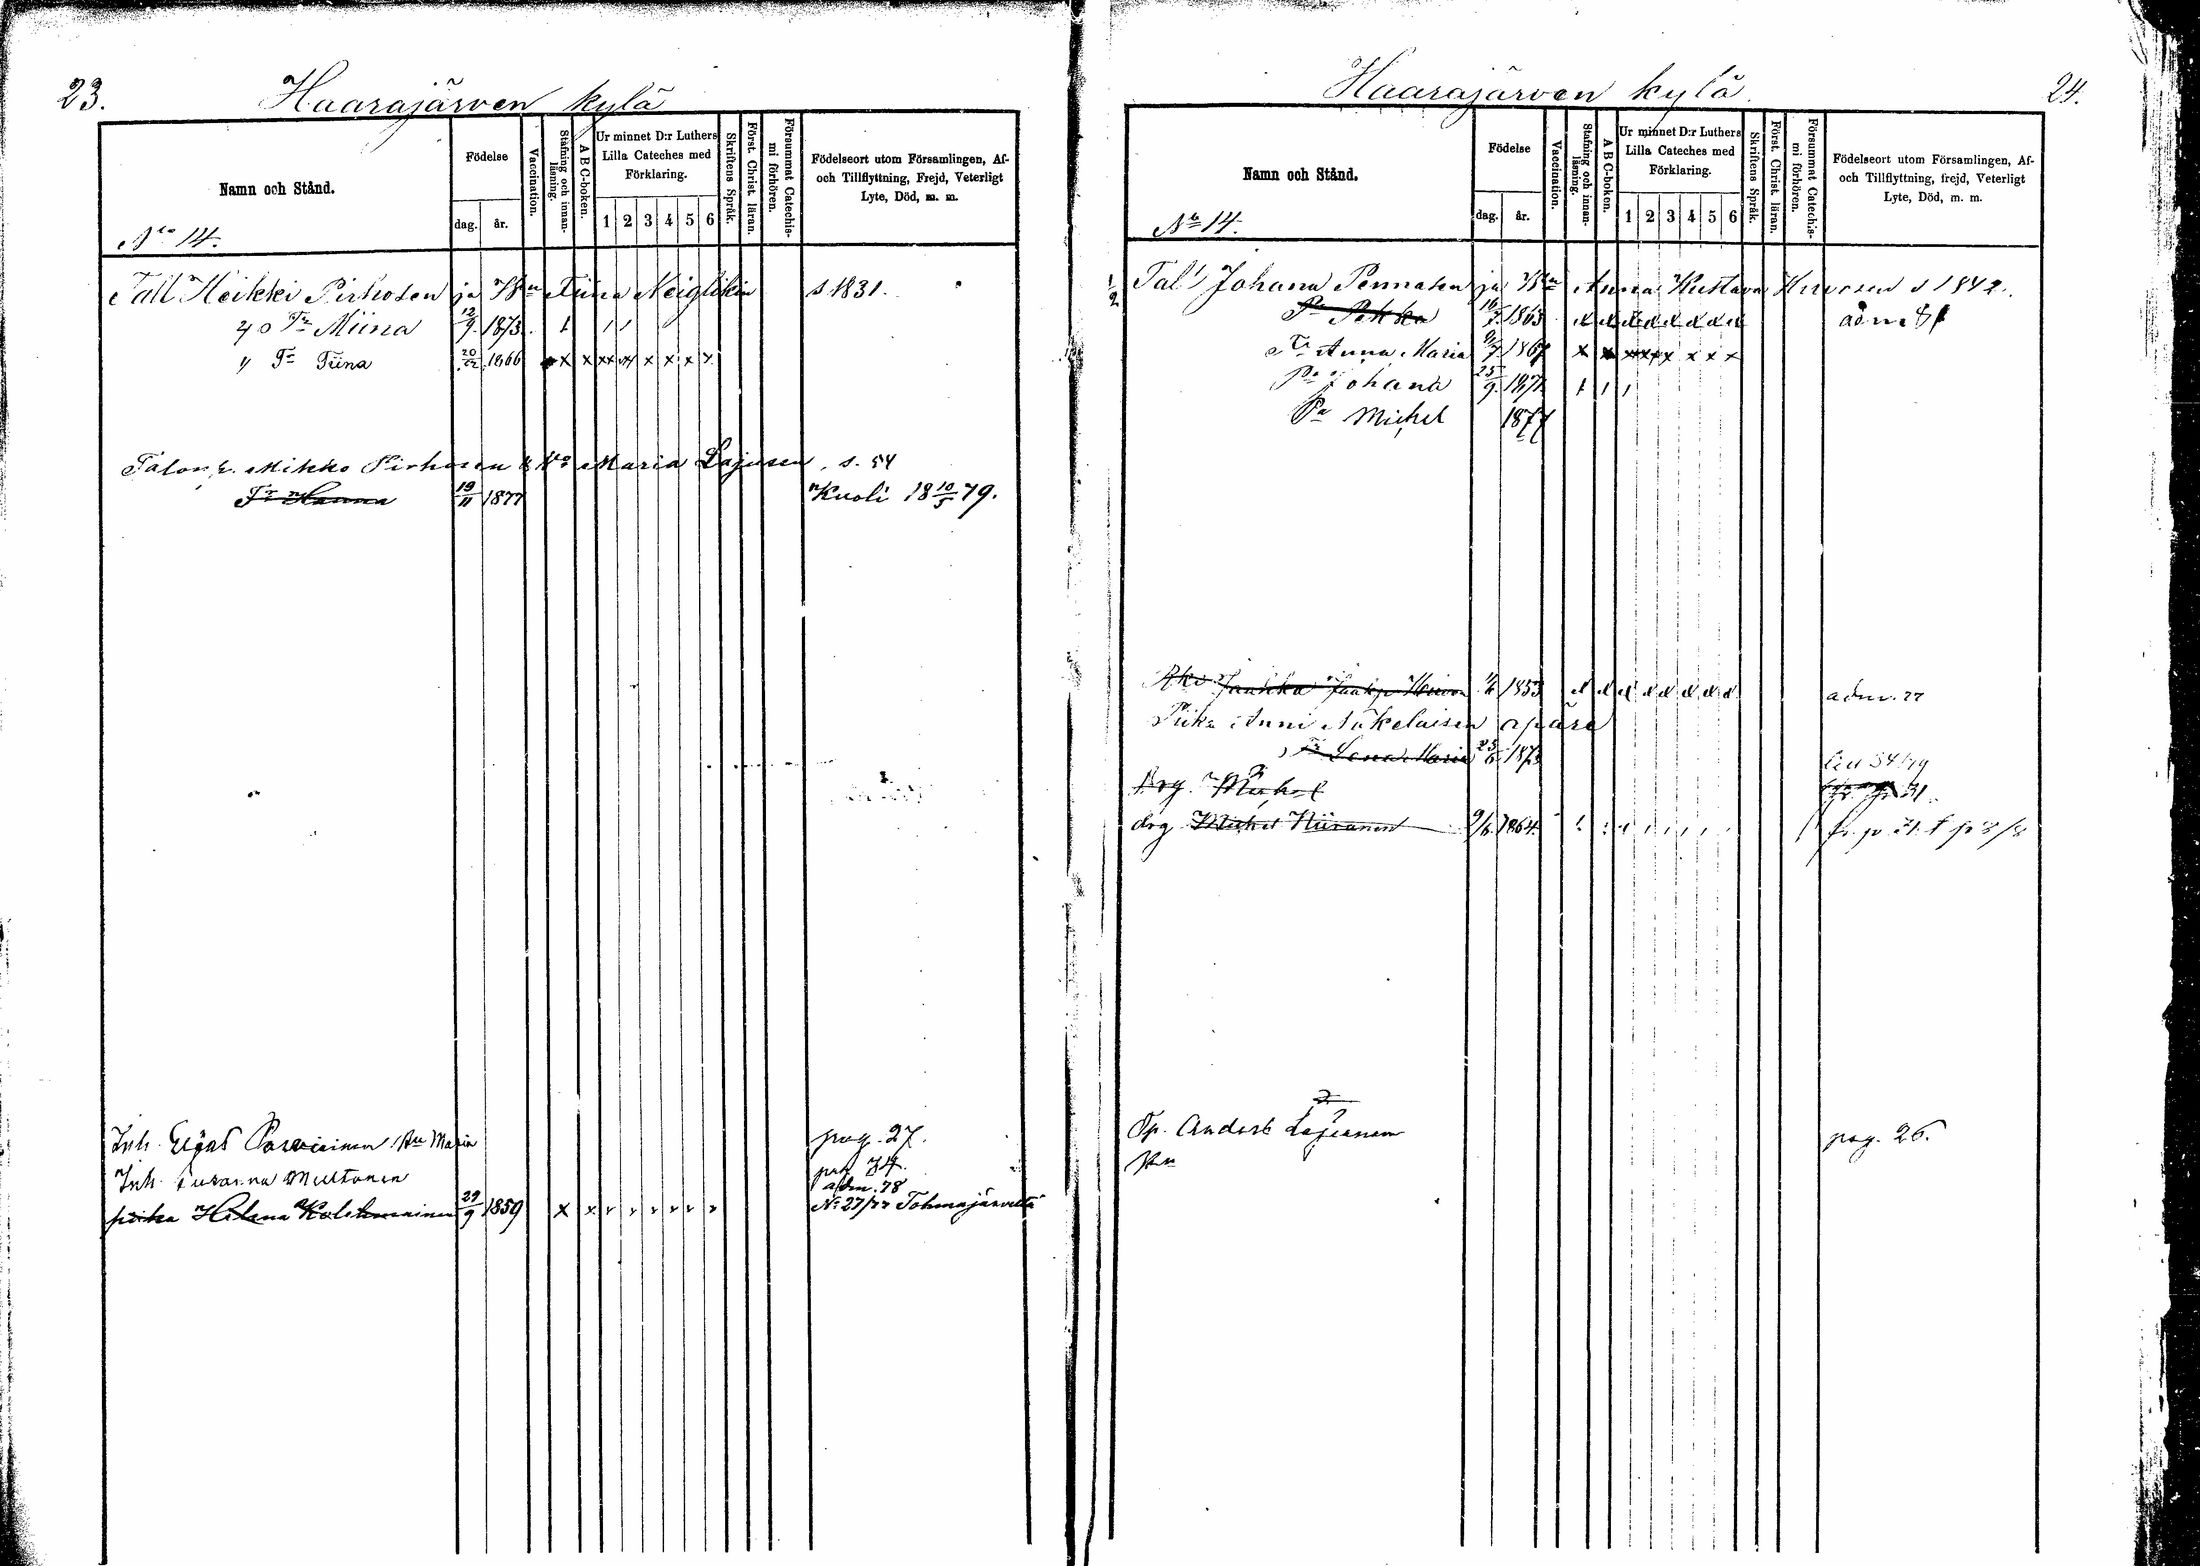 23.
Haarajärven kylä
Namn och Stånd.
Födelse
dag.
år.
Vaccination.
Stafning och innan-läsning.
A B C-boken.
Ur minnet D:r Luthers
Lilla Cateches med
Förklaring.
1 2 3 4 5 6
Skriftens Språk.
Först. Christ. läran.
Försummat Catechis-mi förhören.
Födelseort utom Församlingen, Af-
och Tillflyttning, Frejd, Veterligt
Lyte, Död, m. m.
No 14.
Tall Heikki Pirhosen ja Vn Tiina Neiglikin s 1831.
Tr Miina 12/9 1873
" Tr Tiina 20/12 1866 x x xx x x x x
Talon p. Mikko Pirhosen & Vo Maria Lajusen, s. 54
Tr Hanna 19/11 1877 Kuoli 18 10/5 79.
Inh. Maria pag. 27.
Inh. Susanna Multonen pag 74.
adm. 78
piika Helena Kolehmainen 29/9 1859 x x No 27/77 Tohmajärveltä
24.
Haarajärven kylä
Namn och Stånd.
Födelse
dag.
år.
Vaccination.
Stafning och innan-läsning.
A B C-boken.
Ur minnet D:r Luthers
Lilla Cateches med
Förklaring.
1 2 3 4 5 6
Skriftens Språk.
Först. Christ. läran.
Försummat Catechis-mi förhören.
Födelseort utom Församlingen, Af-
och Tillflyttning, frejd, Veterligt
Lyte, Död, m. m.
No 14.
1/2 Tal Johana Pennasen ja Vn Anna Kustava s 1842.
Pa Pekka 1863 adm 81
Tr Anna Maria 1867 x x x x x x
Pa Johana 25/9 1871
Pa Michel 1877
1853 adm. 77
Piika Anni äpärä
Tr Lena Maria 1873
Drg. Michel
drg Michel Niiranen 9/6 1864 fr. p 21
Op. Anders Lajunen pag. 26.
Vn